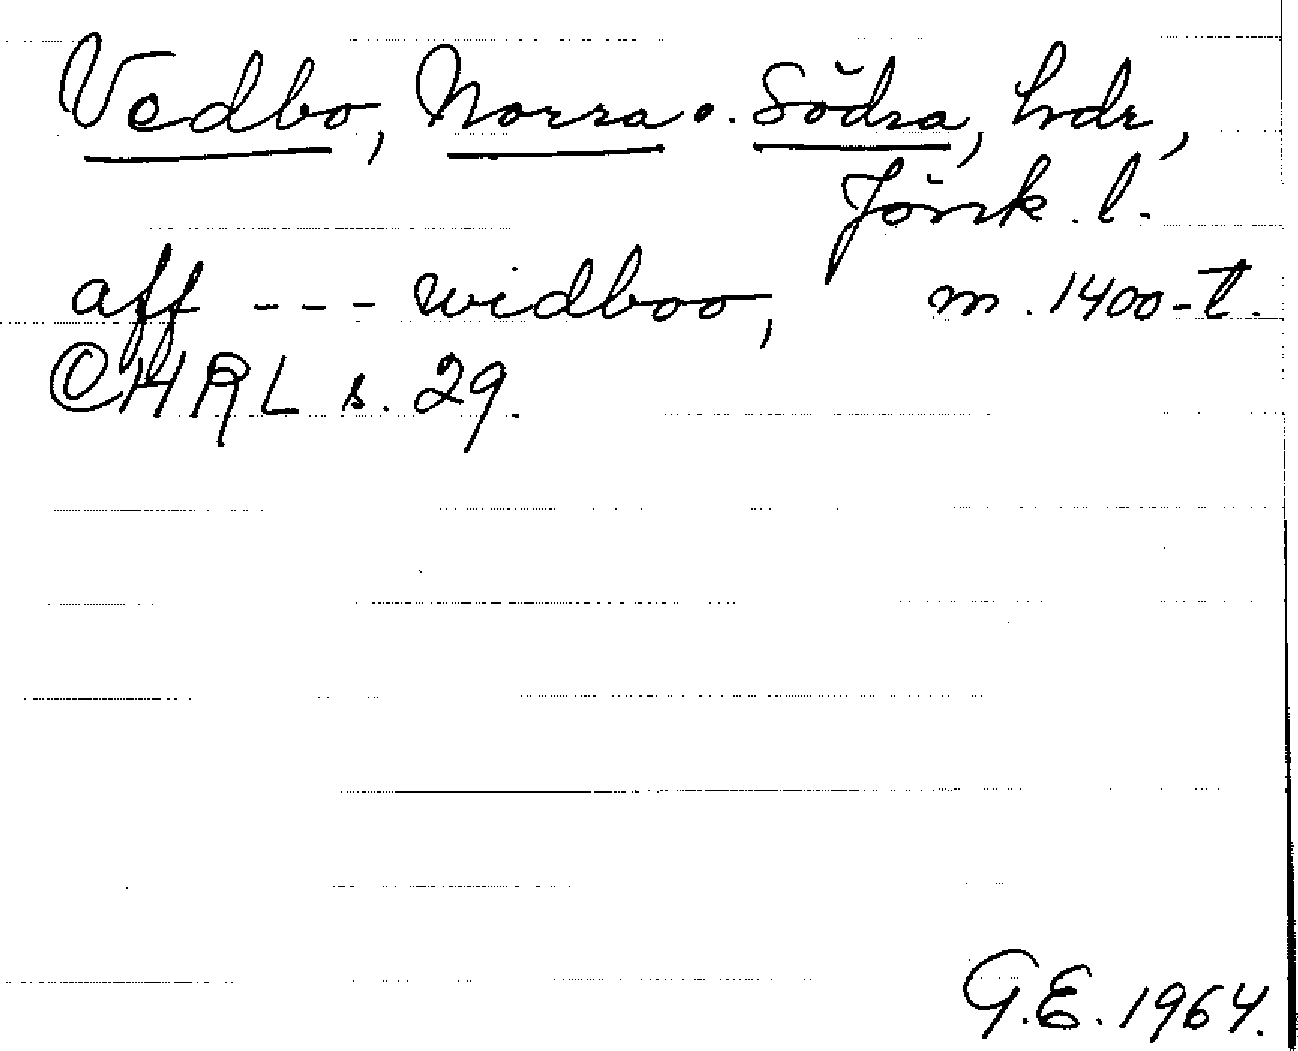 Vedbo, Norra o. Södra, hdr,
Jönk. l.
aff --- widboo, m. 1400-t.
CHRL s. 29.
G.E. 1964.